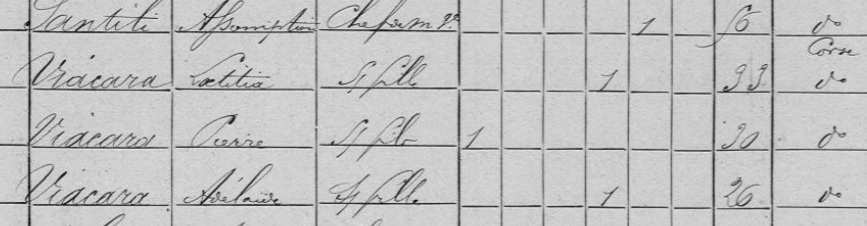 Santili Assomption Chef fem Ve 1 56 do
Corse
Viacara Lætitia Sf fille 1 33 do
Viacara Pierre Sf fils 1 30 do
Viacara Adélaïde Sf fille 1 26 do